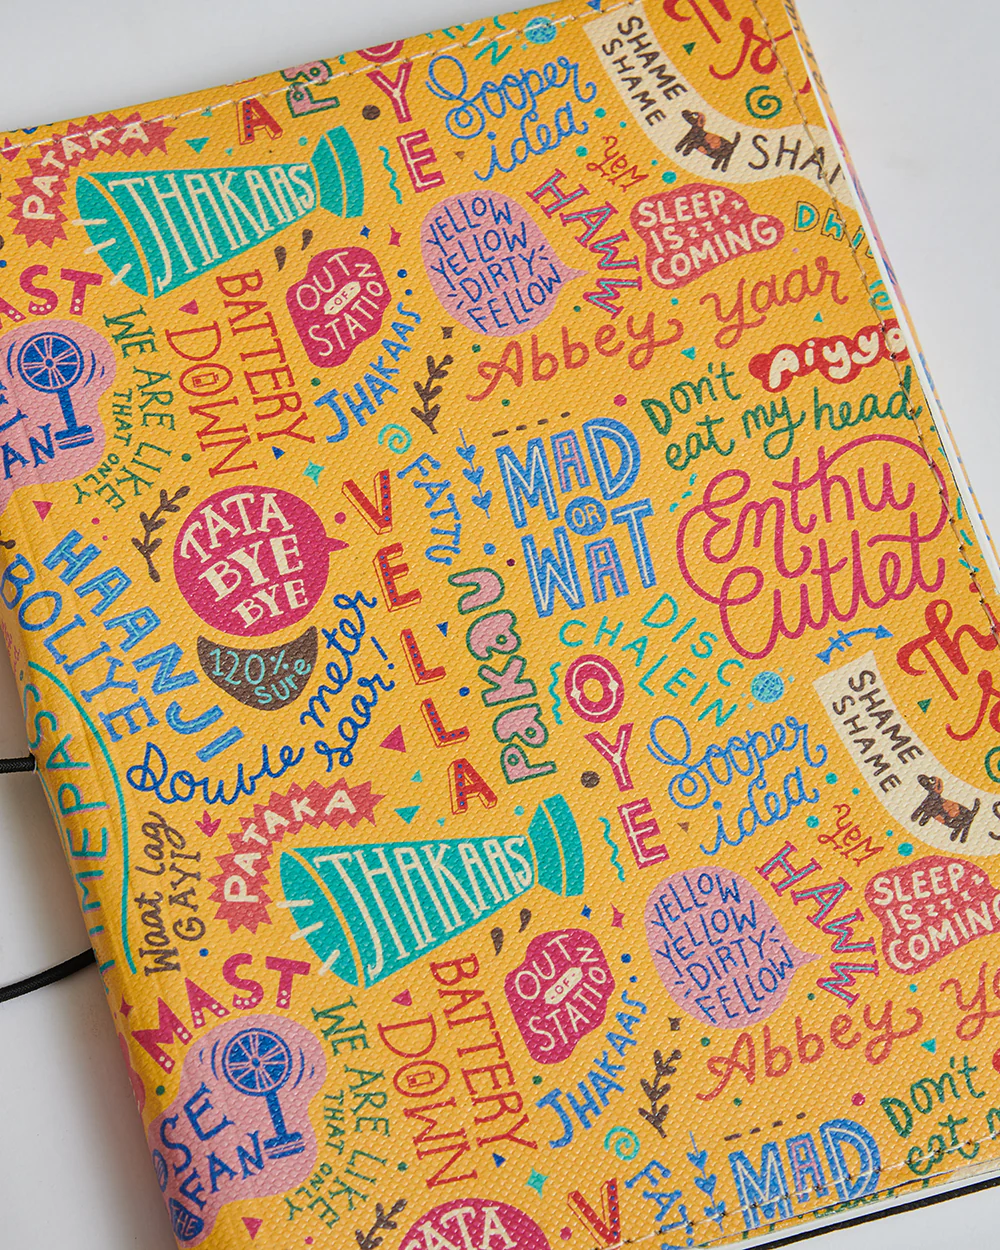 OYE
Sooper
idea
SHAME
SHAME
SHAM
PATAKA
A
THAKAAS
Wah
YELLOW
YELLOW
DIRTY
FELLOW
HAWW
SLEEP
IS zzz
COMING
MAST
OUT
OF
STATION
BATTERY
DOWN
JHAKAAS
Abbey Yaar
WE ARE LIKE
THAT ONLY
FAN
Aiyyo
Don't
eat my head
MAD
OR
WAT
Enthu
Cutlet
FATTU
VELLA
TATA
BYE
BYE
120%
sure
HAANJI
BOLIYE
Double meter
saar!
Pakau
DISC
CHALEIN
OYE
Sooper
idea
SHAME
SHAME
TIMEPASS
Waat Lag
GAYI
PATAKA
THAKAAS
Wah
YELLOW
YELLOW
DIRTY
FELLOW
HAWW
SLEEP
IS zzz
COMING
MAST
OUT
OF
STATION
BATTERY
DOWN
JHAKAAS
Abbey
WE ARE LIKE
THAT ONLY
THE
FAN
Don't
eat
MAD
TATA